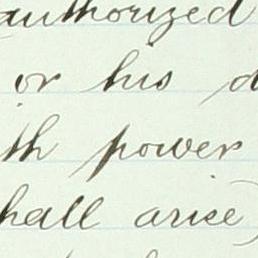 authorized
or his d
th power
hall arise)